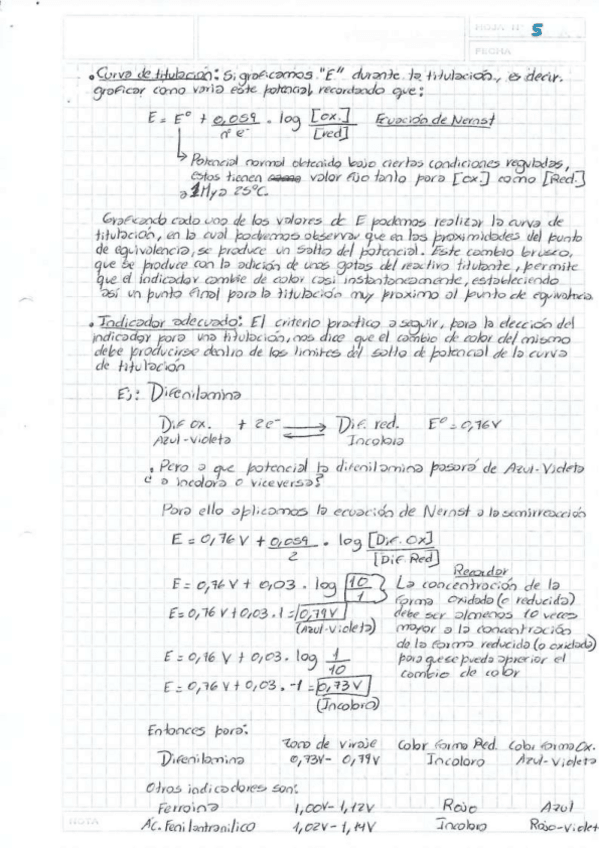 HOJA N° 5
FECHA
• Curva de titulación: Si graficamos "E" durante la titulación, es decir,
graficar como varia este potencial, recordando que:
E = E° + 0,059 . log [ox.] Ecuación de Nernst
n° e⁻ [red]
Potencial normal obtenido bajo ciertas condiciones reguladas,
estos tienen valor fijo tanto para [ox.] como [Red.]
a 1M y a 25°C.
Graficando cada uno de los valores de E podemos realizar la curva de
titulación, en la cual podremos observar que en las proximidades del punto
de equivalencia, se produce un salto del potencial. Este cambio brusco,
que se produce con la adición de unas gotas del reactivo titulante, permite
que el indicador cambie de color casi instantaneamente, estableciendo
así un punto final para la titulación muy proximo al punto de equivalencia.
• Indicador adecuado: El criterio practico a seguir, para la elección del
indicador para una titulación, nos dice que el cambio de color del mismo
debe producirse dentro de los limites del salto de potencial de la curva
de titulación
Ej: Difenilamina
Dif ox. + 2e⁻ ⇄ Dif. red. E° = 0,76V
Azul-Violeta Incolora
¿Pero a que potencial la difenilamina pasará de Azul-Violeta
a incolora o viceversa?
Para ello aplicamos la ecuación de Nernst a la semirreacción
E = 0,76 V + 0,059 . log [Dif. Ox]
2 [Dif Red]
E = 0,76 V + 0,03 . log 10
1
E = 0,76 V + 0,03 . 1 = 0,79V
(Azul-Violeta)
E = 0,76 V + 0,03 . log 1
10
E = 0,76 V + 0,03 . -1 = 0,73V
(Incoloro)
Recordar
La concentración de la
forma oxidada (o reducida)
debe ser al menos 10 veces
mayor a la concentración
de la forma reducida (o oxidada)
para que se pueda apreciar el
cambio de color
Entonces para:
Zona de viraje Color forma Red. Color forma Ox.
Difenilamina 0,73V - 0,79V Incoloro Azul-Violeta
Otros indicadores son:
Ferroina 1,00V - 1,12V Rojo Azul
Ac. Fenilantranilico 1,02V - 1,14V Incoloro Rojo-Violeta
NOTA